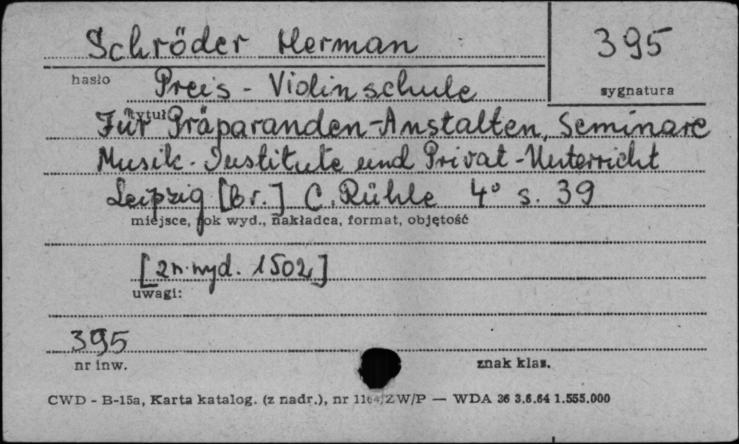 Schröder Herman 395
hasło sygnatura
Preis - Violinschule
tytuł
Für Präparanden-Anstalten, Seminare
Musik-Institute und Privat-Unterricht
Leipzig [br.] C. Rühle 4° s. 39
miejsce, rok wyd., nakładca, format, objętość
[zn. wyd. 1502]
uwagi:
395
nr inw. znak klas.
CWD - B-15a, Karta katalog. (z nadr.), nr ZW/P — WDA 36 3.6.64 1.555.000